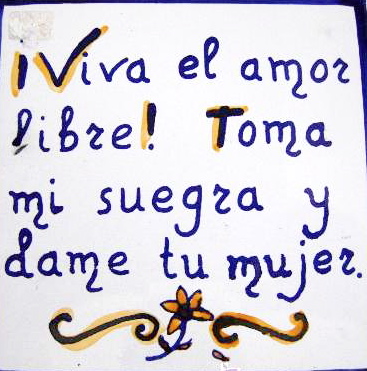 ¡Viva el amor
libre! Toma
mi suegra y
dame tu mujer.